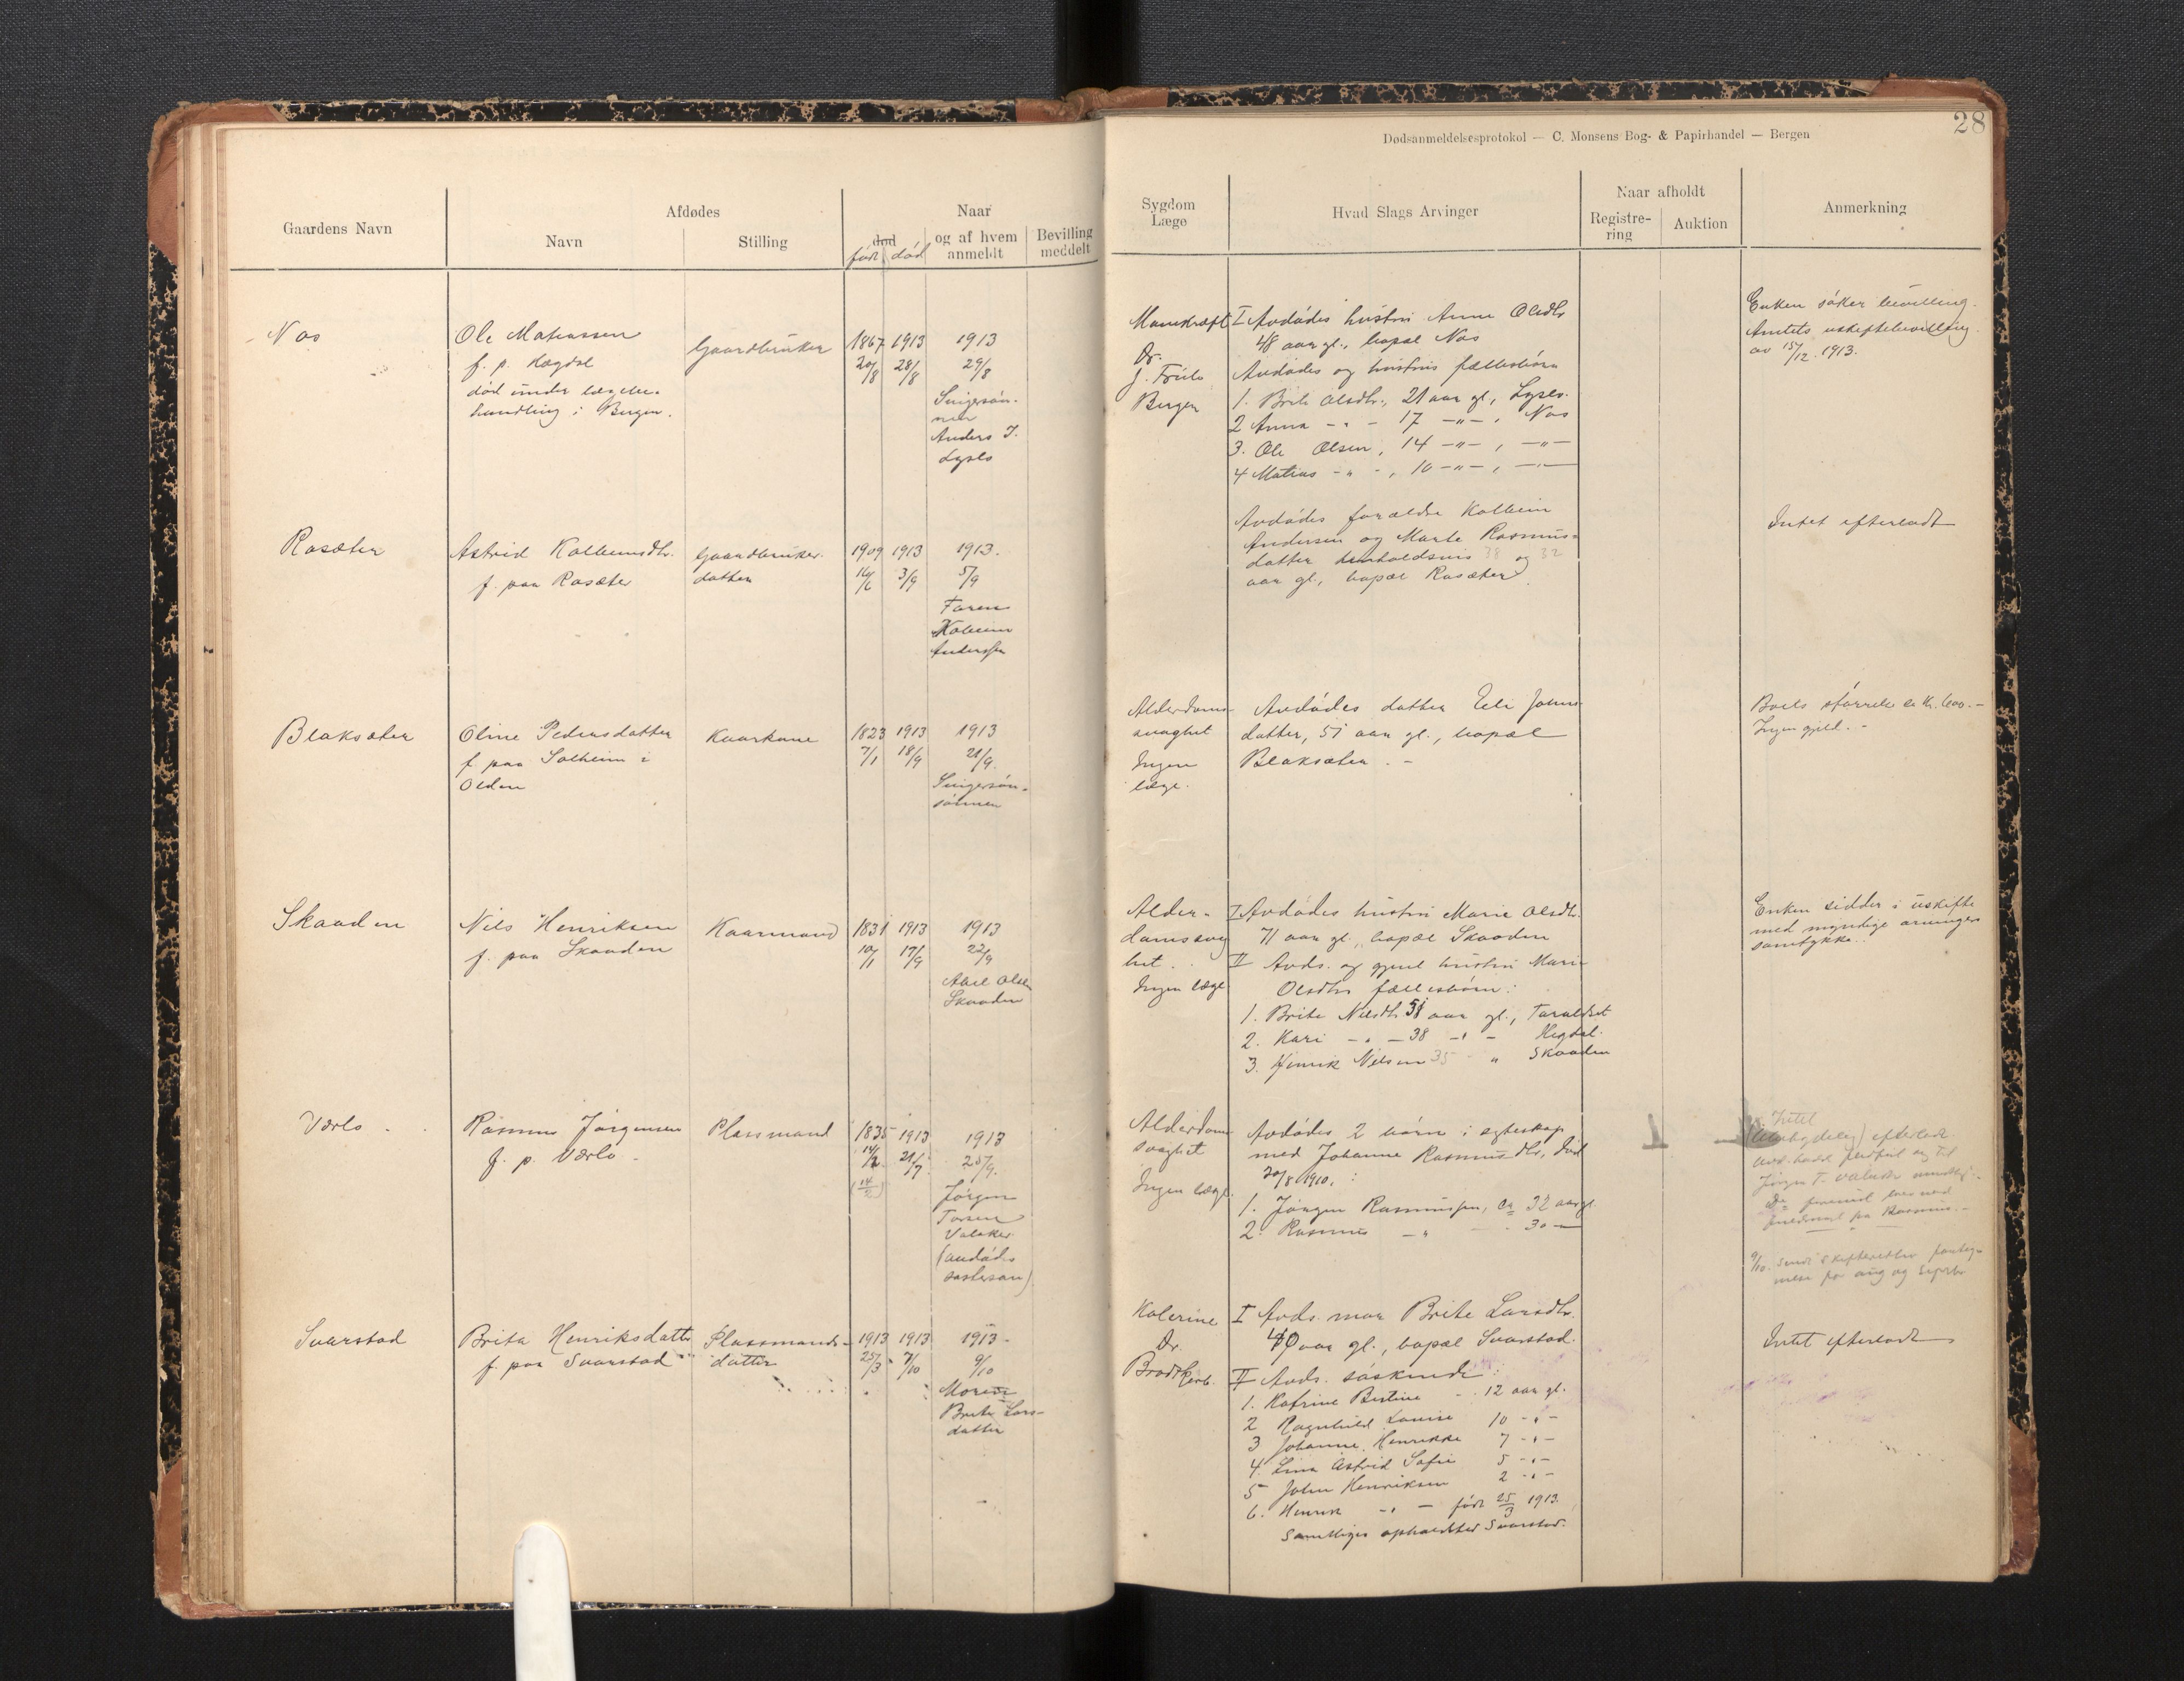 28
Dødsanmeldelsesprotokol — C. Monsens Bog- & Papirhandel — Bergen
Gaardens Navn
Afdødes
Navn
Stilling
Naar
død
født død
og af hvem
anmeldt
Bevilling
meddelt
Sygdom
Læge
Hvad Slags Arvinger
Naar afholdt
Registre-
ring
Auktion
Anmerkning
Nos
Ole Matiassen
f. p.
død under lægebe-
handling i Bergen.
Gaardbruker
1867 1913 1913
20/8 28/8 29/8
Svigersøn-
nen
Anders J.
Lyslo
Dr.
Bergen
I Avdødes hustru Anne Olsdtr
48 aar gl., bopæl Nos
Avdødes og hustrus fællesbørn
1. Brite Olsdtr., 21 aar gl., Lyslo.
2 Anna - " - 17 -"-, Nos
3. Ole Olsen, 14 -"-, -"-
4 Matias -"-, 10 -"-, -"-
Enken søker bevilling.
Amtets uskiftebevilling
av 15/12. 1913.
Rosæter
Astrid Kolbeinsdtr.
f. paa Rosæter
Gaardbruker-
datter
1909 1913 1913.
16/6 3/9 5/9
Faren
Kolbein
Anderssen
Avdødes forældre Kolbein
Andersen og Marte Rasmus-
datter henholdsvis 38 og 32
aar gl., bopæl Rosæter.
Intet efterladt
Blaksæter
Oline Pedersdatter
f. paa Solheim i
Olden
Kaarkone
1823 1913 1913
7/1 18/9 21/9.
Svigersøn-
sønnen
Alderdoms-
svaghet
Ingen
læge.
Avdødes datter Eli Johns-
datter, 51 aar gl., bopæl
Blaksæter. -
Boets størrelse ca kr. 600.-
Ingen gjeld. -
Skaaden
Nils Henriksen
f. paa Skaaden
Kaarmand
1831 1913 1913
10/1 17/9 22/9
Abel Olsen
Skaaden
Alder-
domssvag
het.
Ingen læge
I Avdødes hustru Marie Olsdtr.
71 aar gl., bopæl Skaaden
II Avds. og gjenl hustru Marie
Olsdtrs fællesbørn:
1. Brite Nilsdtr. 51 aar gl., Taraldset
2. Kari - " - 38 - " - Hegdal.
3. Henrik Nilsen 35 " Skaaden
Enken sidder i uskifte
med myndige arvingers
samtykke.
Værlo
Rasmus Jørgensen
f. p. Værlo.
Plassmand
1835 1913 1913
14/2 21/9 25/9.
(14/2)
Jørgen
Tarsen
Valaker
(avdødes
søstersøn)
Alderdoms
svaghet
Ingen læge.
Avdødes 2 børn i egteskap
med Johanne Rasmusdtr., død
20/8 1910. :
1. Jørgen Rasmussen, ca 32 aar gl.
2. Rasmus - " - 30 -
Intet
(ubetydelig) efterladt
9/10. sendt skifteretten
for aug og septbr
Svarstad
Brita Henriksdatter
f. paa Svarstad
Plassmands-
datter
1913 1913 1913-
25/3 7/10 9/10
Moren
Brite Lars-
datter
Kolerine
Dr.
Brodtkorb.
I Avds. mor Brite Larsdtr.
40 aar gl., bopæl Svarstad.
II Avds. søskende:
1. Katrine Bertine - 12 aar gl.
2 Ragnhild Lovise 10 -"-
3 Johanne Henrikke 7 -"-
4. Lina Astrid Sofie 5 -"-
5 John Henriksen 2 -"-
6. Henrik -"- født 25/3 1913.
Samtliges opholdssted Svarstad.
Intet efterladt